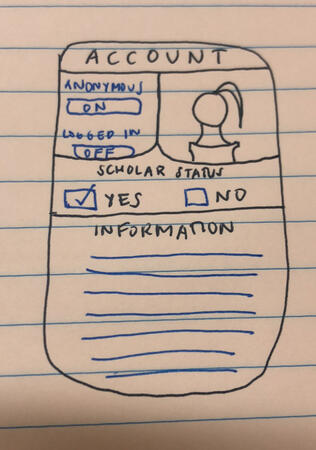 ACCOUNT
ANONYMOUS
ON
LOGGED IN
OFF
SCHOLAR STATUS
YES NO
INFORMATION